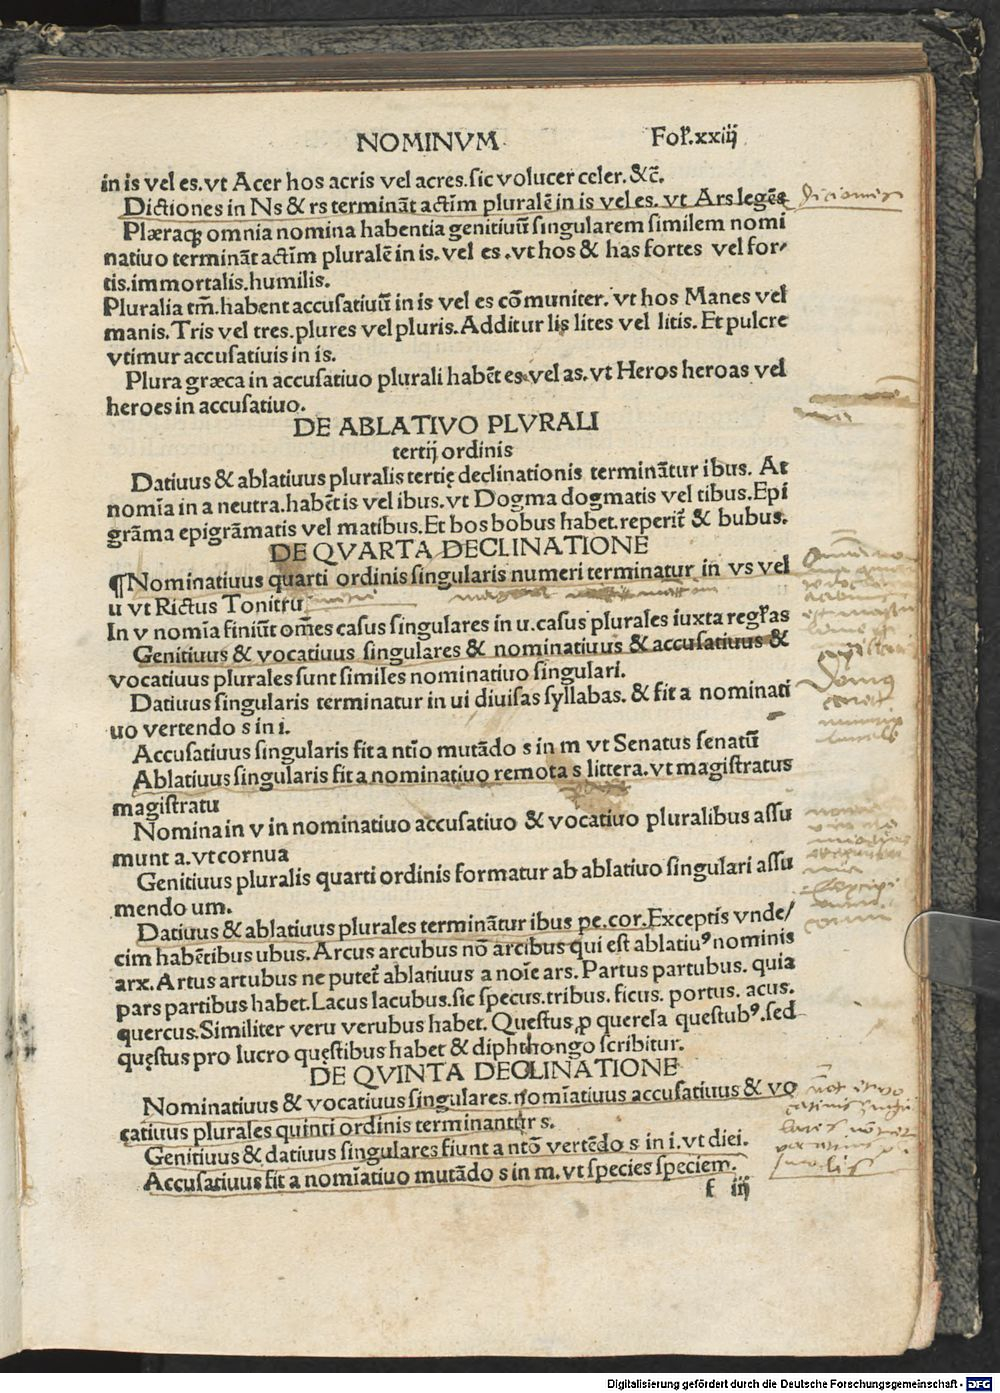 NOMINVM Fol. xxiij
in is vel es. vt Acer hos acris vel acres. sic volucer celer. &c̄.
Dictiones in Ns & rs terminãt actīm pluralẽ in is vel es. vt Ars legẽs
Plæraqꝫ omnia nomina habentia genitiuũ singularem similem nomi
natiuo terminãt actīm pluralẽ in is. vel es . vt hos & has fortes vel for⸗
tis. immortalis. humilis.
Pluralia tm̄. habent accusatiuũ in is vel es cõmuniter. vt hos Manes vel
manis. Tris vel tres. plures vel pluris. Additur lis lites vel litis. Et pulcre
vtimur accusatiuis in is.
Plura græca in accusatiuo plurali habẽt es vel as. vt Heros heroas vel
heroes in accusatiuo.
DE ABLATIVO PLVRALI
tertij ordinis
Datiuus & ablatiuus pluralis tertię declinationis terminãtur ibus. At
nomĩa in a neutra. habẽt is vel ibus. vt Dogma dogmatis vel tibus. Epi
grãma epigrãmatis vel matibus. Et bos bobus habet. reperit̃ & bubus.
DE QVARTA DECLINATIONE
¶Nominatiuus quarti ordinis singularis numeri terminatur in vs vel
u vt Rictus Tonitru
In v nomĩa finiũt om̃es casus singulares in u. casus plurales iuxta regl̃as
Genitiuus & vocatiuus singulares & nominatiuus & accusatiuus &
vocatiuus plurales sunt similes nominatiuo singulari.
Datiuus singularis terminatur in ui diuisas syllabas. & fit a nominati
uo vertendo s in i.
Accusatiuus singularis fit a ntĩo mutãdo s in m vt Senatus senatũ
Ablatiuus singularis fit a nominatiuo remota s littera. vt magistratus
magistratu
Nomina in v in nominatiuo accusatiuo & vocatiuo pluralibus assu
munt a. vt cornua
Genitiuus pluralis quarti ordinis formatur ab ablatiuo singulari assu
mendo um.
Datiuus & ablatiuus plurales terminãtur ibus pe. cor. Exceptis vnde⸗
cim habẽtibus ubus. Arcus arcubus nõ arcibus qui est ablatiuꝰ nominis
arx. Artus artubus ne putet̃ ablatiuus a noĩe ars. Partus partubus. quia
pars partibus habet. Lacus lacubus. sic specus. tribus. ficus. portus. acus.
quercus. Similiter veru verubus habet. Questus ꝓ querela questubꝰ. sed
quęstus pro lucro quęstibus habet & diphthongo scribitur.
DE QVINTA DECLINATIONE
Nominatiuus & vocatiuus singulares. nomĩatiuus accusatiuus & vo
catiuus plurales quinti ordinis terminantur s.
Genitiuus & datiuus singulares fiunt a ntõ vertẽdo s in i. vt diei.
Accusatiuus fit a nomĩatiuo mutãdo s in m. vt species speciem.
f iij
Digitalisierung gefördert durch die Deutsche Forschungsgemeinschaft - DFG